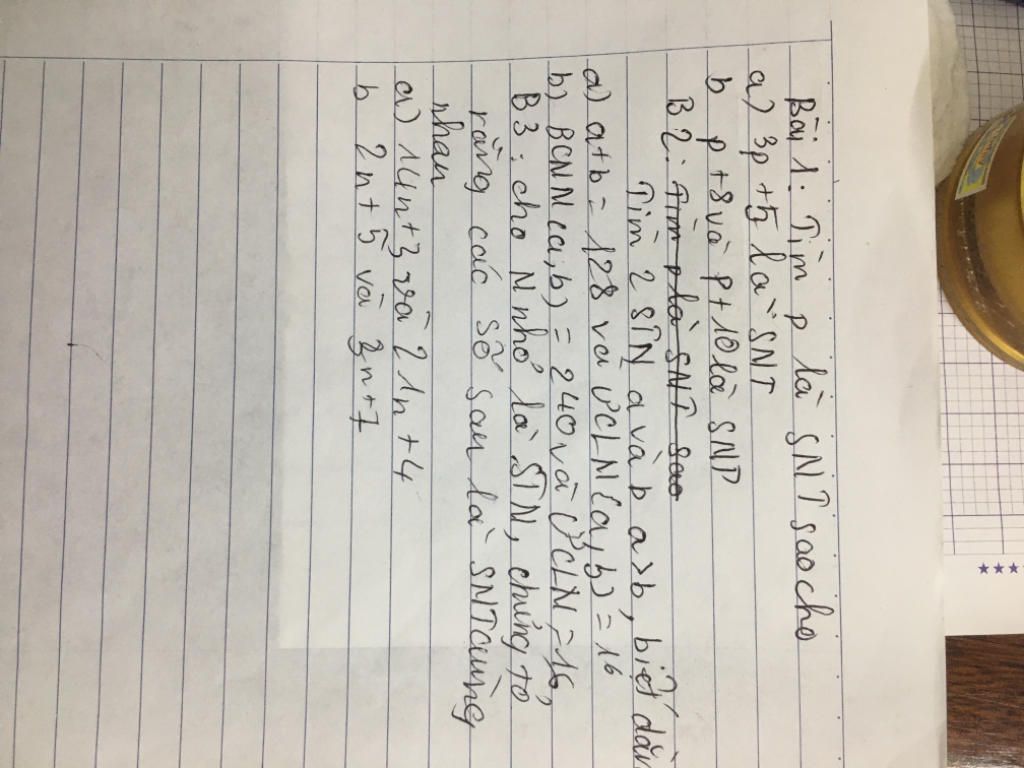 Bài 1: Tìm p là SNT sao cho
a) 3p + 5 là SNT
b p + 8 và p + 10 là SNT
B2: Tìm p là SNT sao
Tìm 2 STN a và b a>b, biết dằn
a) a+b = 128 và ƯCLN(a,b) = 16
b) BCNN(a,b) = 240 và ƯCLN = 16
B3: cho N nhỏ là STN, chứng tỏ
rằng các số sau là SNT cùng
nhau
a) 14n+3 và 21n+4
b 2n+5 và 3n+7